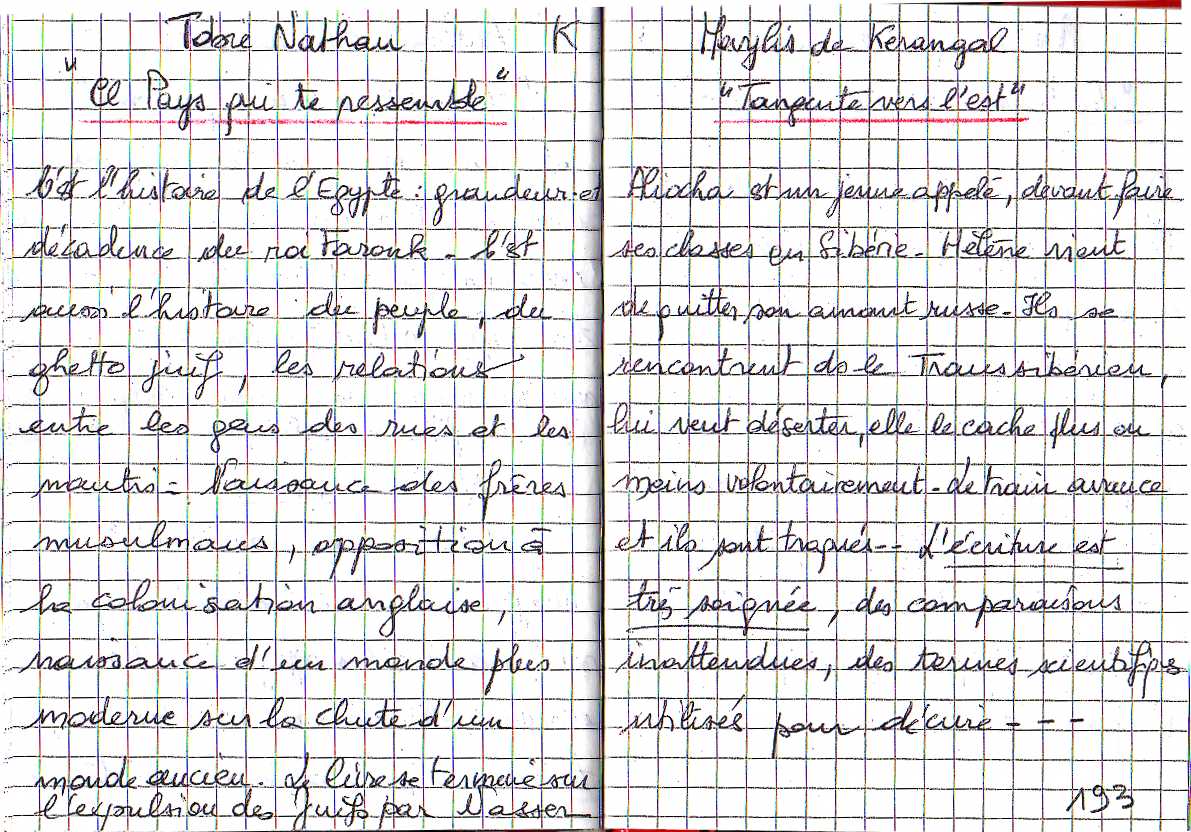 Tobie Nathan K
"Ce Pays qui te ressemble"
C'est l'histoire de l'Egypte : grandeur et
décadence du roi Farouk - C'est
aussi l'histoire du peuple, du
ghetto juif, les relations
entre les gens des rues et les
nantis - Naissance des frères
musulmans, opposition à
la colonisation anglaise,
naissance d'un monde plus
moderne sur la chute d'un
monde ancien. Le livre se termine sur
l'expulsion des Juifs par Nasser
Maylis de Kerangal
"Tangente vers l'est"
Aliocha est un jeune appelé, devant faire
ses classes en Sibérie - Hélène vient
de quitter son amant russe - Ils se
rencontrent ds le Transsibérien,
lui veut déserter, elle le cache plus ou
moins volontairement - Le train avance
et ils sont traqués -- L'écriture est
très soignée, des comparaisons
inattendues, des termes scientifiques
utilisés pour décrire - - -
193